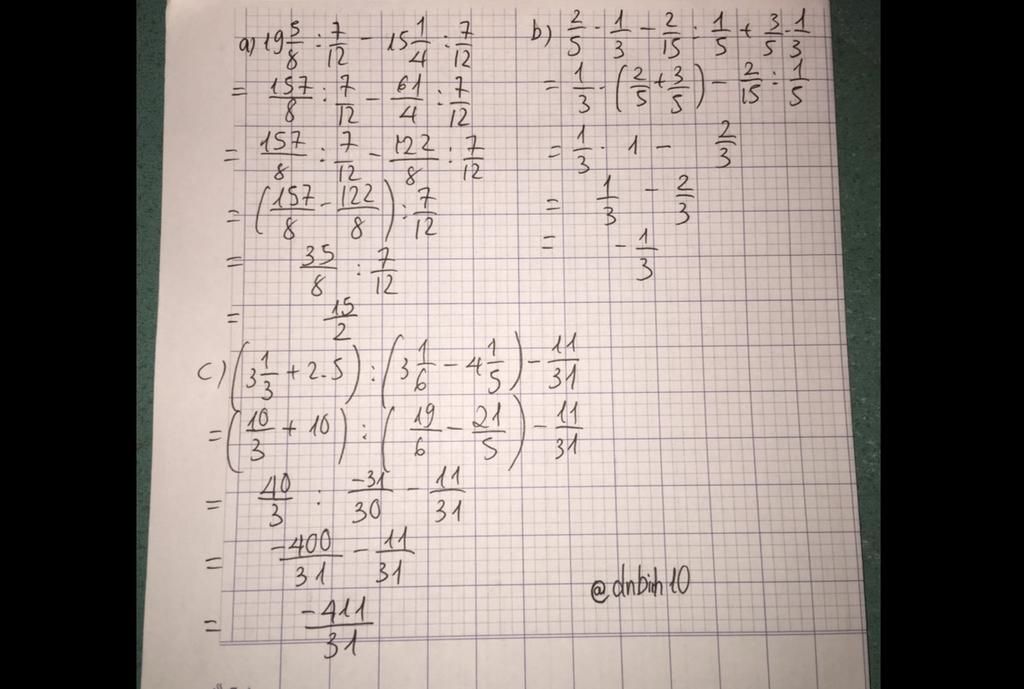 a) 19 5/8 : 7/12 - 15 1/4 : 7/12
= 157/8 : 7/12 - 61/4 : 7/12
= 157/8 : 7/12 - 122/8 : 7/12
= (157/8 - 122/8) : 7/12
= 35/8 : 7/12
= 15/2
b) 2/5 · 1/3 - 2/15 : 1/5 + 3/5 · 1/3
= 1/3 · (2/5 + 3/5) - 2/15 : 1/5
= 1/3 · 1 - 2/3
= 1/3 - 2/3
= -1/3
c) (3 1/3 + 2.5) : (3 1/6 - 4 1/5) - 11/31
= (10/3 + 10) : (19/6 - 21/5) - 11/31
= 40/3 : -31/30 - 11/31
= -400/31 - 11/31
= -411/31
@dnbinh10